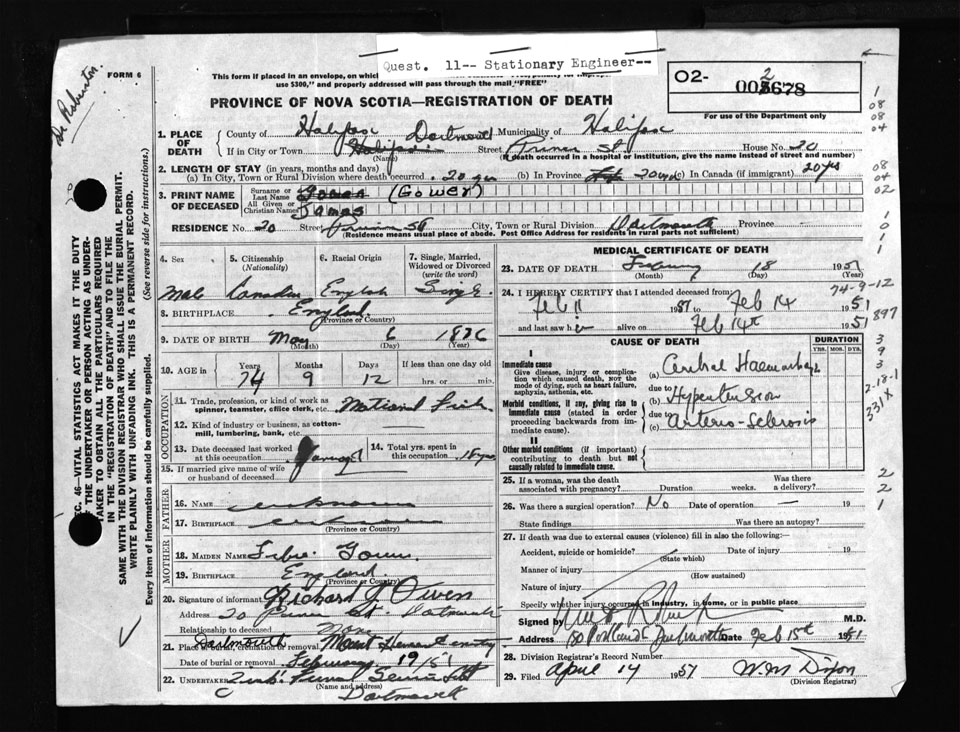 Quest. 11-- Stationary Engineer--
FORM 6
This form if placed in an envelope, on which
use $300," and properly addressed will pass through the mail "FREE"
O2- 005678
2
For use of the Department only
PROVINCE OF NOVA SCOTIA—REGISTRATION OF DEATH
1. PLACE OF DEATH
County of Halifax Dartmouth Municipality of Halifax
If in City or Town Halifax (Name) Street Prince St House No. 20
(If death occurred in a hospital or institution, give the name instead of street and number)
2. LENGTH OF STAY (in years, months and days)
(a) In City, Town or Rural Division where death occurred 20 yrs (b) In Province 20 yrs (c) In Canada (if immigrant) 20 yrs
3. PRINT NAME OF DECEASED
Surname or Last Name (Gower)
All Given or Christian Names James
RESIDENCE No. 20 Street Prince St City, Town or Rural Division Dartmouth Province
(Residence means usual place of abode. Post Office Address for residents in rural parts not sufficient)
4. Sex
5. Citizenship (Nationality)
6. Racial Origin
7. Single, Married, Widowed or Divorced (write the word)
Male Canadian English Single
8. BIRTHPLACE England
(Province or Country)
9. DATE OF BIRTH May 6 1876
(Month) (Day) (Year)
10. AGE in Years Months Days If less than one day old
74 9 12 hrs. or min.
OCCUPATION
11. Trade, profession, or kind of work as spinner, teamster, office clerk, etc. National Fish
12. Kind of industry or business, as cotton-mill, lumbering, bank, etc.
13. Date deceased last worked at this occupation
14. Total yrs. spent in this occupation 18 yrs
15. If married give name of wife or husband of deceased
FATHER
16. NAME unknown
17. BIRTHPLACE unknown
(Province or Country)
MOTHER
18. MAIDEN NAME
19. BIRTHPLACE England
(Province or Country)
20. Signature of informant Richard J Owen
Address 20 Prince St. Dartmouth
Relationship to deceased None
21. Place of burial, cremation or removal Dartmouth Mount Hermon Cemetery
Date of burial or removal February 19/51
22. UNDERTAKER Funeral Service Ltd
(Name and address)
Dartmouth
MEDICAL CERTIFICATE OF DEATH
23. DATE OF DEATH February 18 1951
(Month) (Day) (Year)
74-9-12
24. I HEREBY CERTIFY that I attended deceased from
Feb 11 1951 Feb 14 1951
and last saw h alive on Feb 14th 1951
CAUSE OF DEATH
DURATION
YRS. MOS. DYS.
I
Immediate cause
Give disease, injury or complication which caused death, NOT the mode of dying, such as heart failure, asphyxia, asthenia, etc.
(a) Cerebral Haemorrhage
due to
Morbid conditions, if any, giving rise to immediate cause (stated in order proceeding backwards from immediate cause).
(b) Hypertension
due to
(c) Arterio-Sclerosis
II
Other morbid conditions (if important) contributing to death but not causally related to immediate cause.
25. If a woman, was the death associated with pregnancy? Duration weeks. Was there a delivery?
26. Was there a surgical operation? No Date of operation — 19
State findings Was there an autopsy?
27. If death was due to external causes (violence) fill in also the following:
Accident, suicide or homicide? Date of injury 19
(State which)
Manner of injury
(How sustained)
Nature of injury
Specify whether injury occurred in industry, in home, or in public place
Signed by M.D.
Address 180 Portland St Dartmouth Date Feb 15th 1951
28. Division Registrar's Record Number
29. Filed April 14 1951 W.M Dixon
(Division Registrar)
SEC. 46—VITAL STATISTICS ACT MAKES IT THE DUTY
OF THE UNDERTAKER OR PERSON ACTING AS UNDER-
TAKER TO OBTAIN ALL THE PARTICULARS REQUIRED
IN THE "REGISTRATION OF DEATH" AND TO FILE THE
SAME WITH THE DIVISION REGISTRAR WHO SHALL ISSUE THE BURIAL PERMIT.
WRITE PLAINLY WITH UNFADING INK. THIS IS A PERMANENT RECORD.
Every item of information should be carefully supplied. (See reverse side for instructions.)
1
08
08
04
08
04
02
1
0
1
1
897
3
9
3
2-18-1
331X
2
2
1